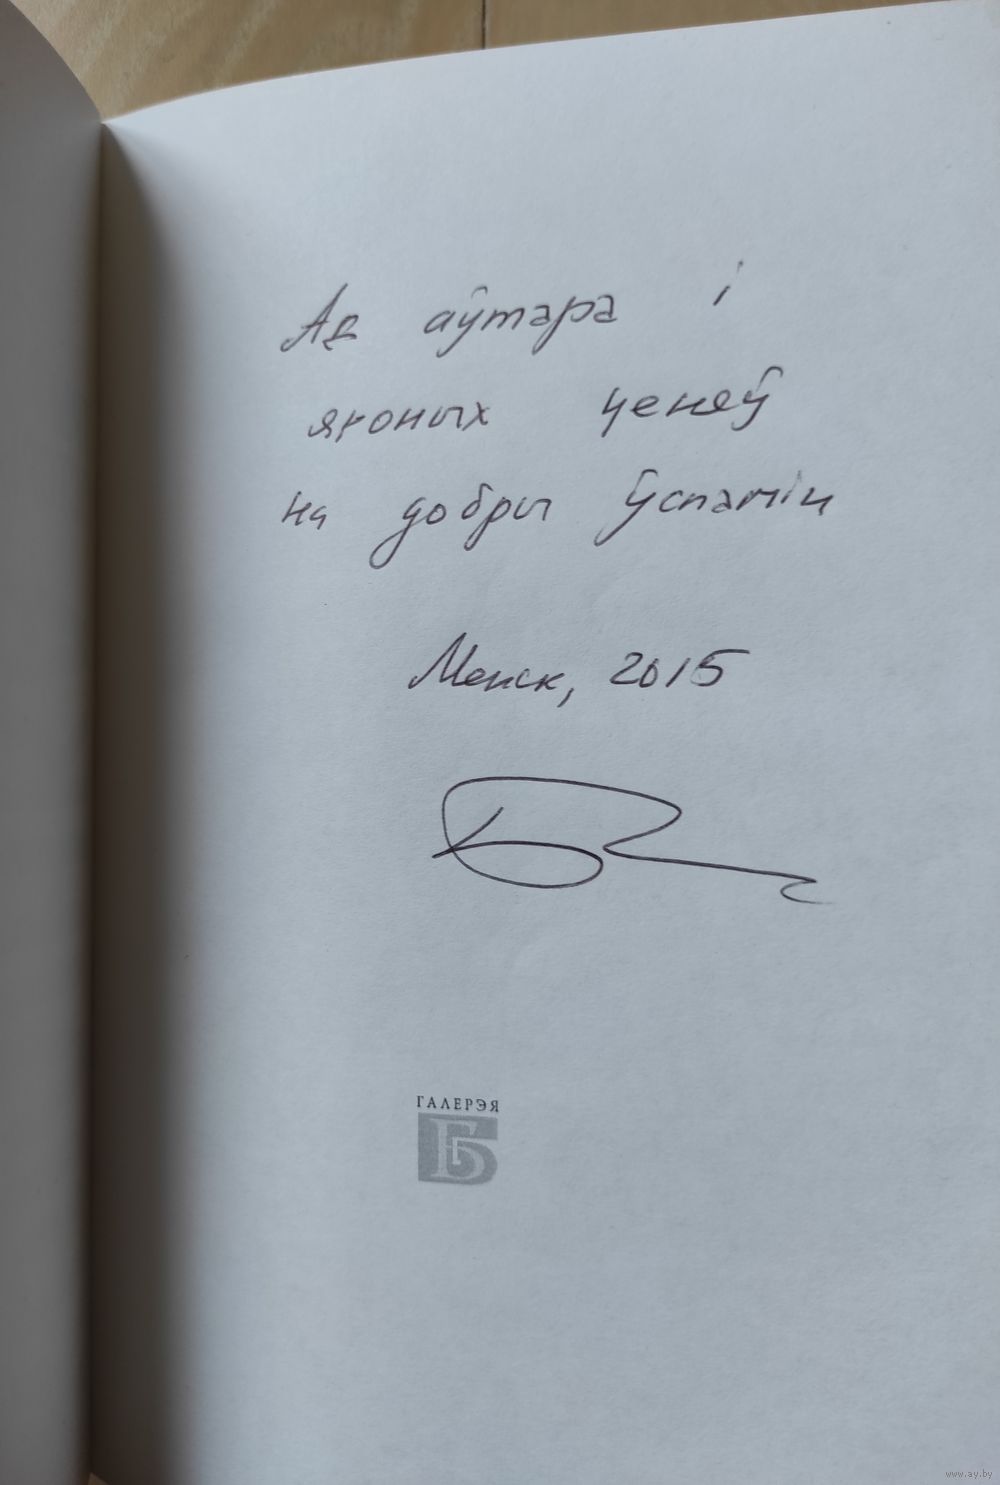 Ад аўтара і
ягоных ценяў
на добры ўспамін
Менск, 2015
ГАЛЕРЭЯ
Б
www.ay.by